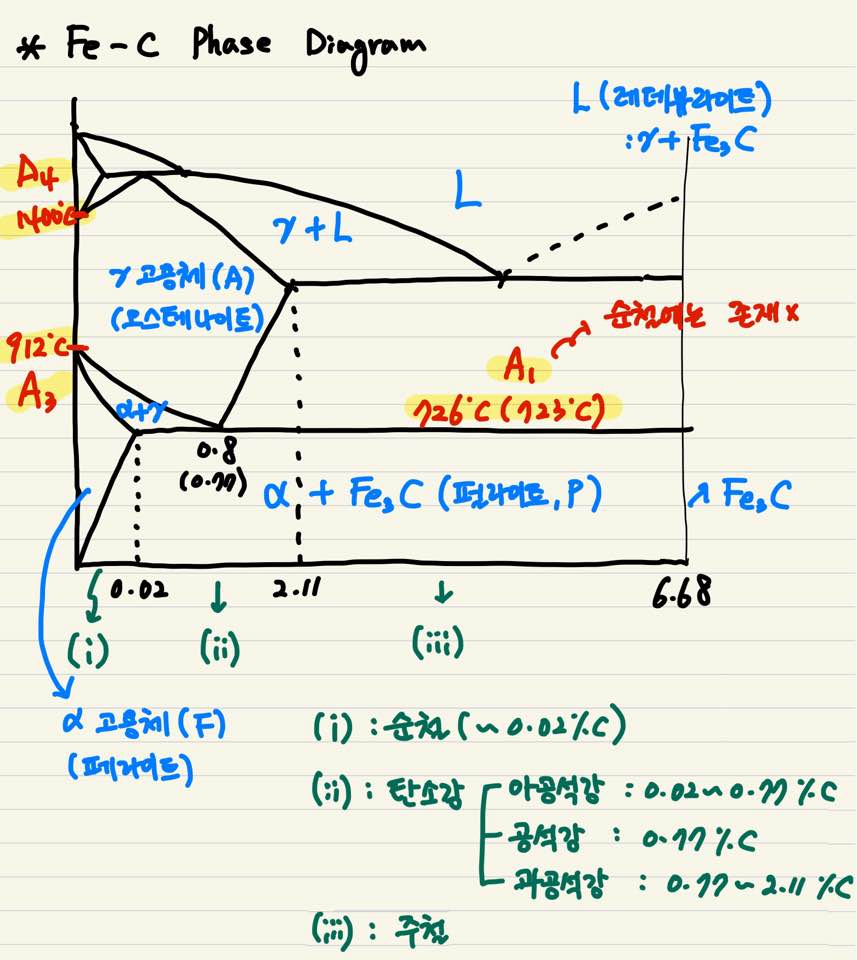 * Fe-C Phase Diagram
L (레데뷰라이트)
: γ + Fe₃C
A₄
1400℃
L
γ + L
γ 고용체 (A)
(오스테나이트)
순철에는 존재 x
912℃
A₁
A₃
α+γ
726℃ (723℃)
0.8
(0.77)
α + Fe₃C (펄라이트, P)
↗ Fe₃C
0.02
2.11
6.68
(i)
(ii)
(iii)
α 고용체 (F)
(페라이트)
(i) : 순철 (~0.02%C)
(ii) : 탄소강
아공석강 : 0.02~0.77 %C
공석강 : 0.77 %C
과공석강 : 0.77~2.11 %C
(iii) : 주철